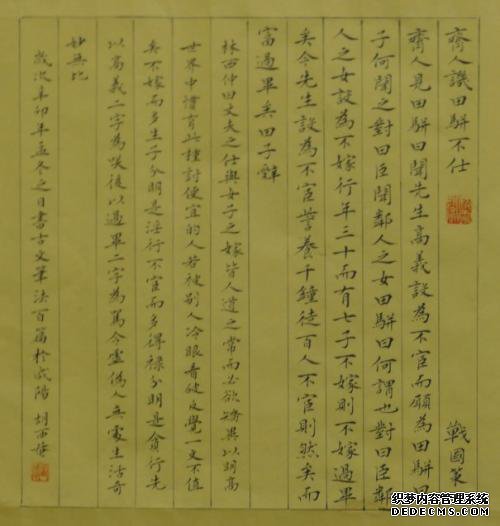 齊人譏田駢不仕 戰國策
齊人見田駢曰聞先生高義設為不宦而願為田駢曰
子何聞之對曰臣聞鄰人之女田駢曰何謂也對曰臣鄰
人之女設為不嫁行年三十而有七子不嫁則不嫁過畢
矣今先生設為不宦訾養千鍾徒百人不宦則然矣而
富過畢矣田子辭
林西仲曰丈夫之仕與女子之嫁皆人道之常而必欲矯異以明高
世界中慣有此種討便宜的人若被別人冷眼看破文學一文不值
矣不嫁而多生子分明是淫行不宦而多得祿分明是貪行先
以高義二字為後以過畢二字為罵令虛偽人無處生活奇
妙無比
歲次辛卯年孟冬之日書古文筆法百篇於咸陽 胡
织梦内容管理系统
DEDECMS.COM